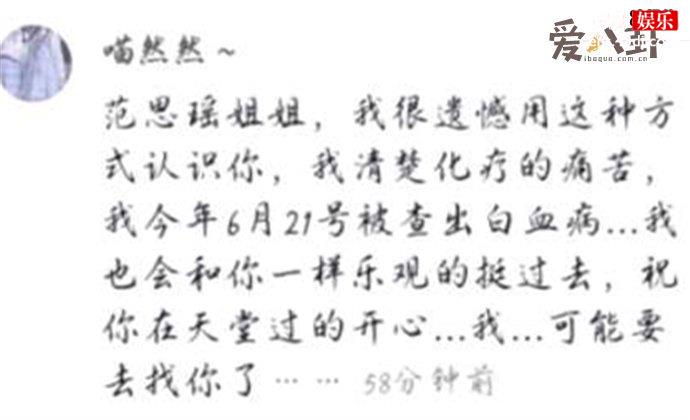 娱乐
爱八卦
ibagua.com.cn
喵然然~
范思瑶姐姐，我很遗憾用这种方
式认识你，我清楚化疗的痛苦，
我今年6月21号被查出白血病...我
也会和你一样乐观的挺过去，祝
你在天堂过的开心...我...可能要
去找你了…… 58分钟前